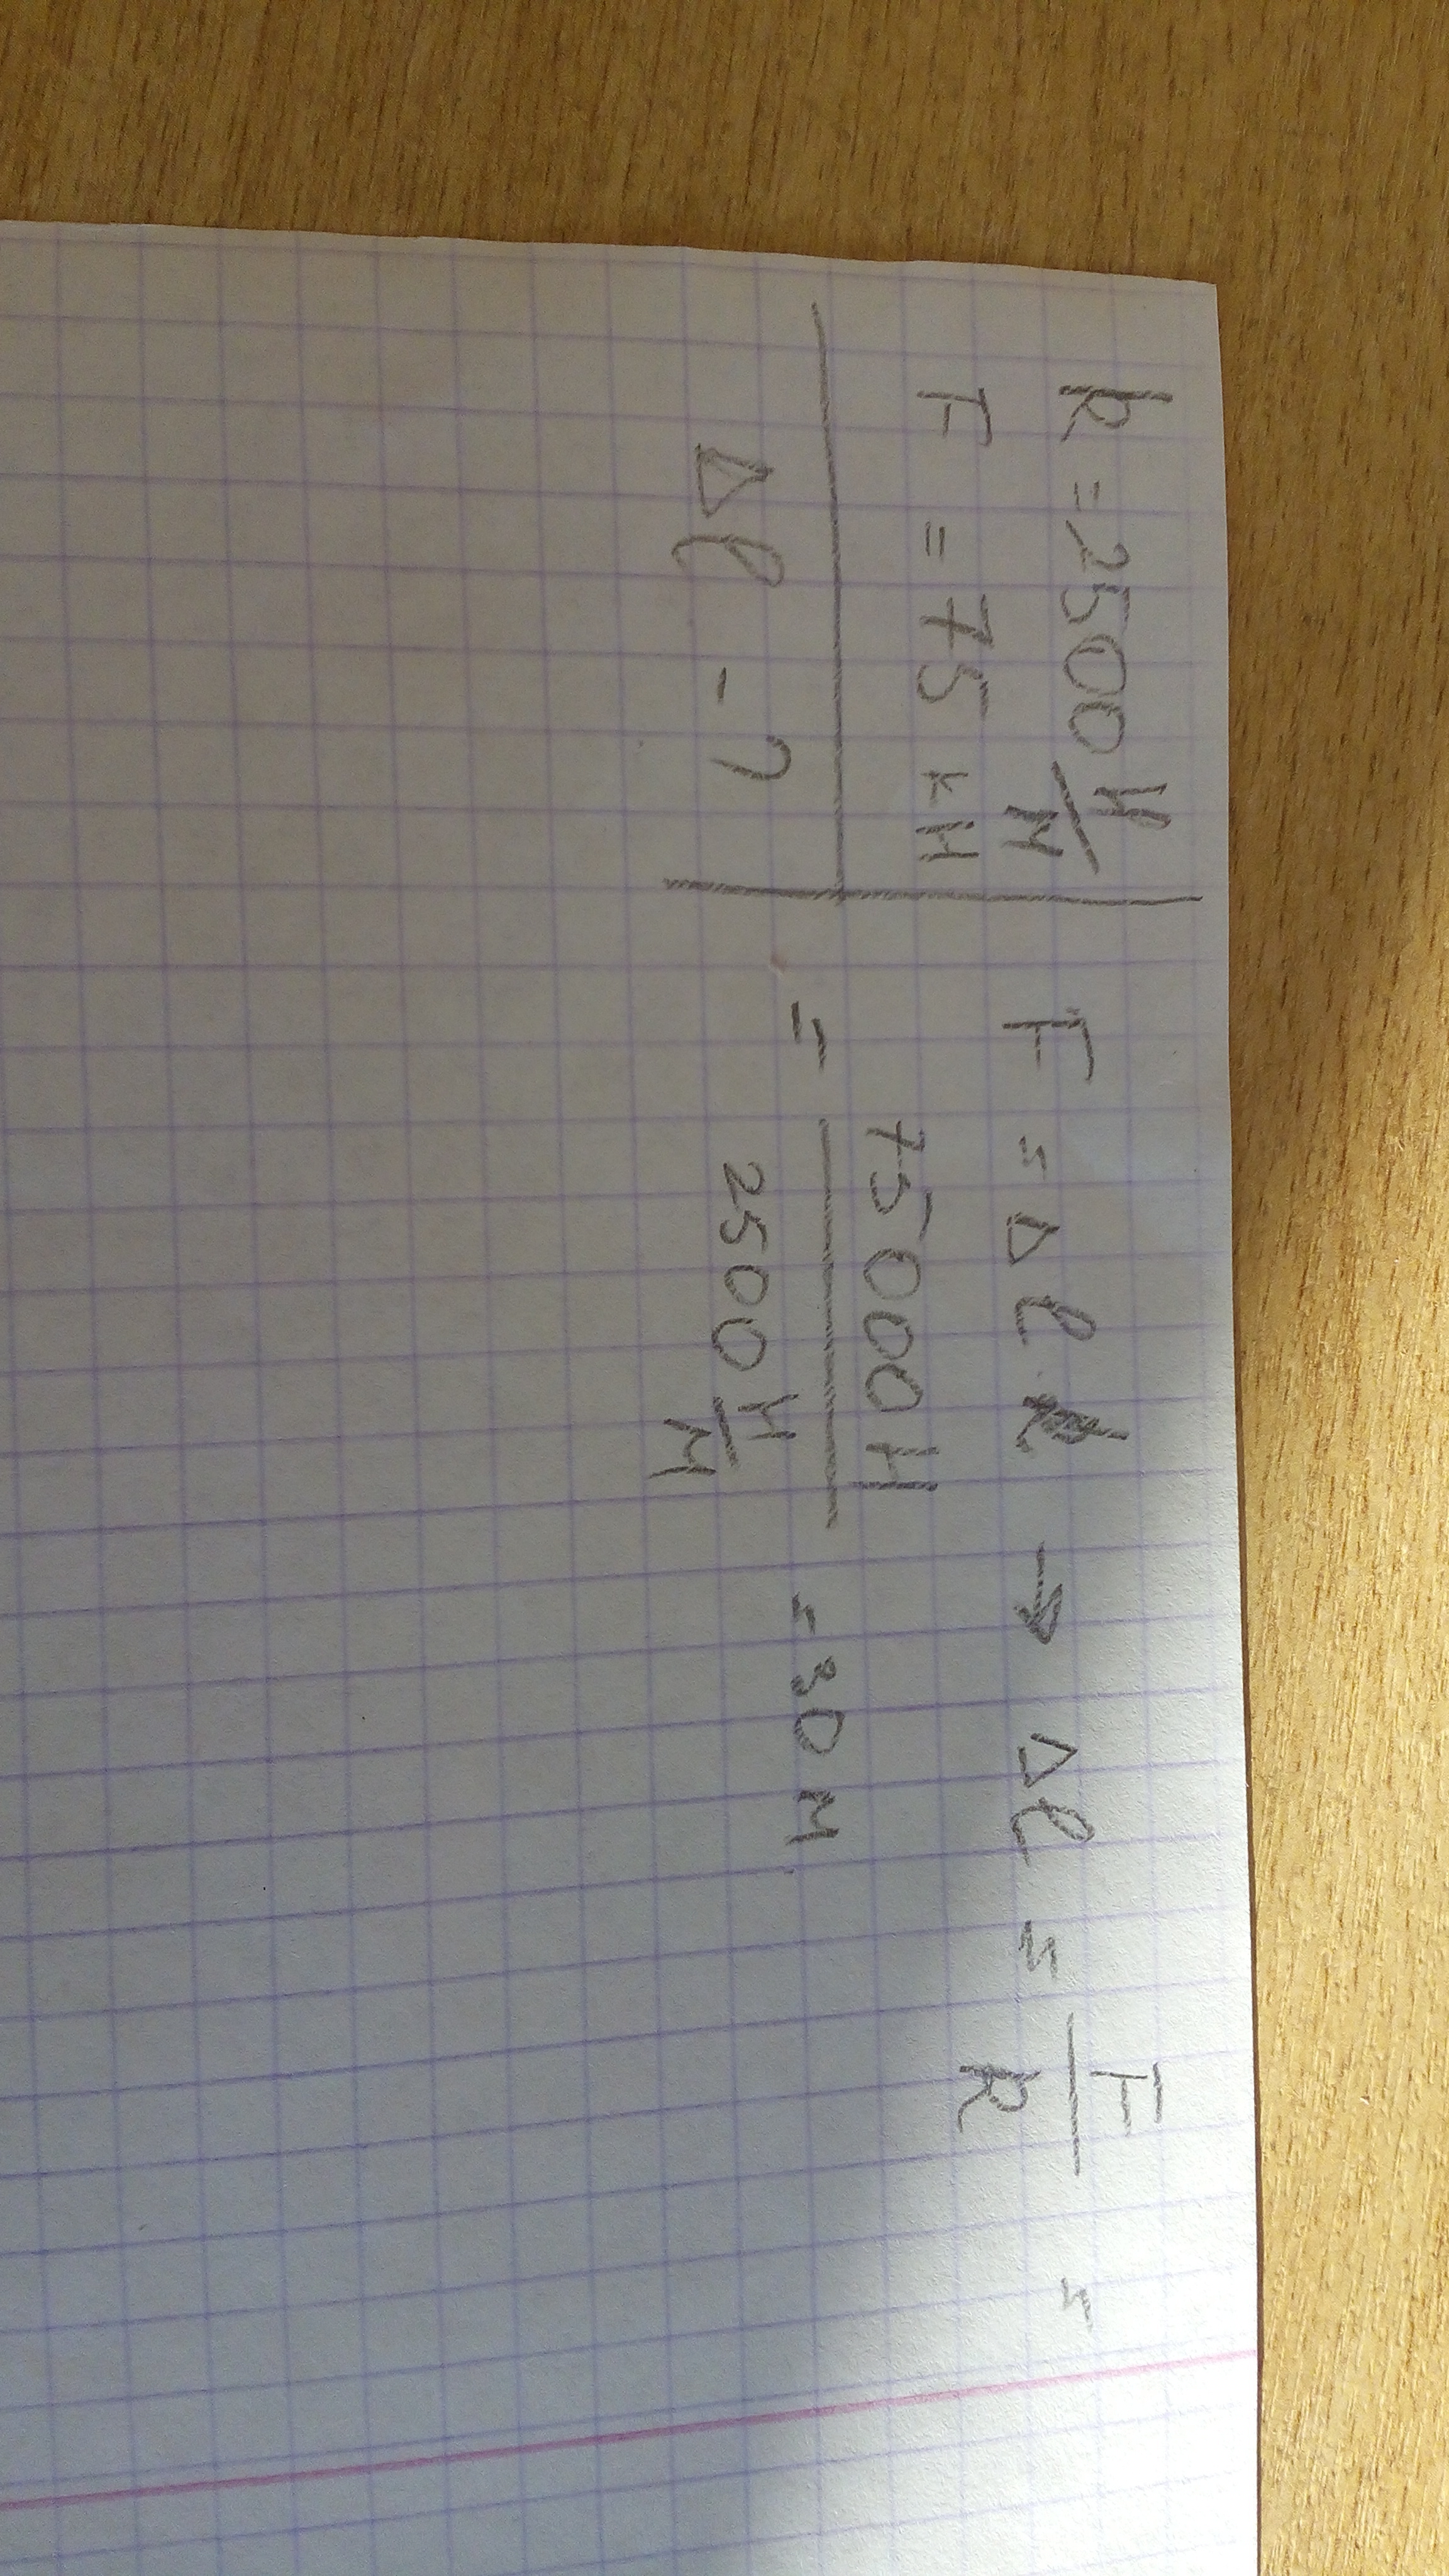 k = 2500 Н/М
F = 75 кН
Δl - ?
F = Δl · k → Δl = F/k =
= 75000Н / 2500 Н/М = 30 м